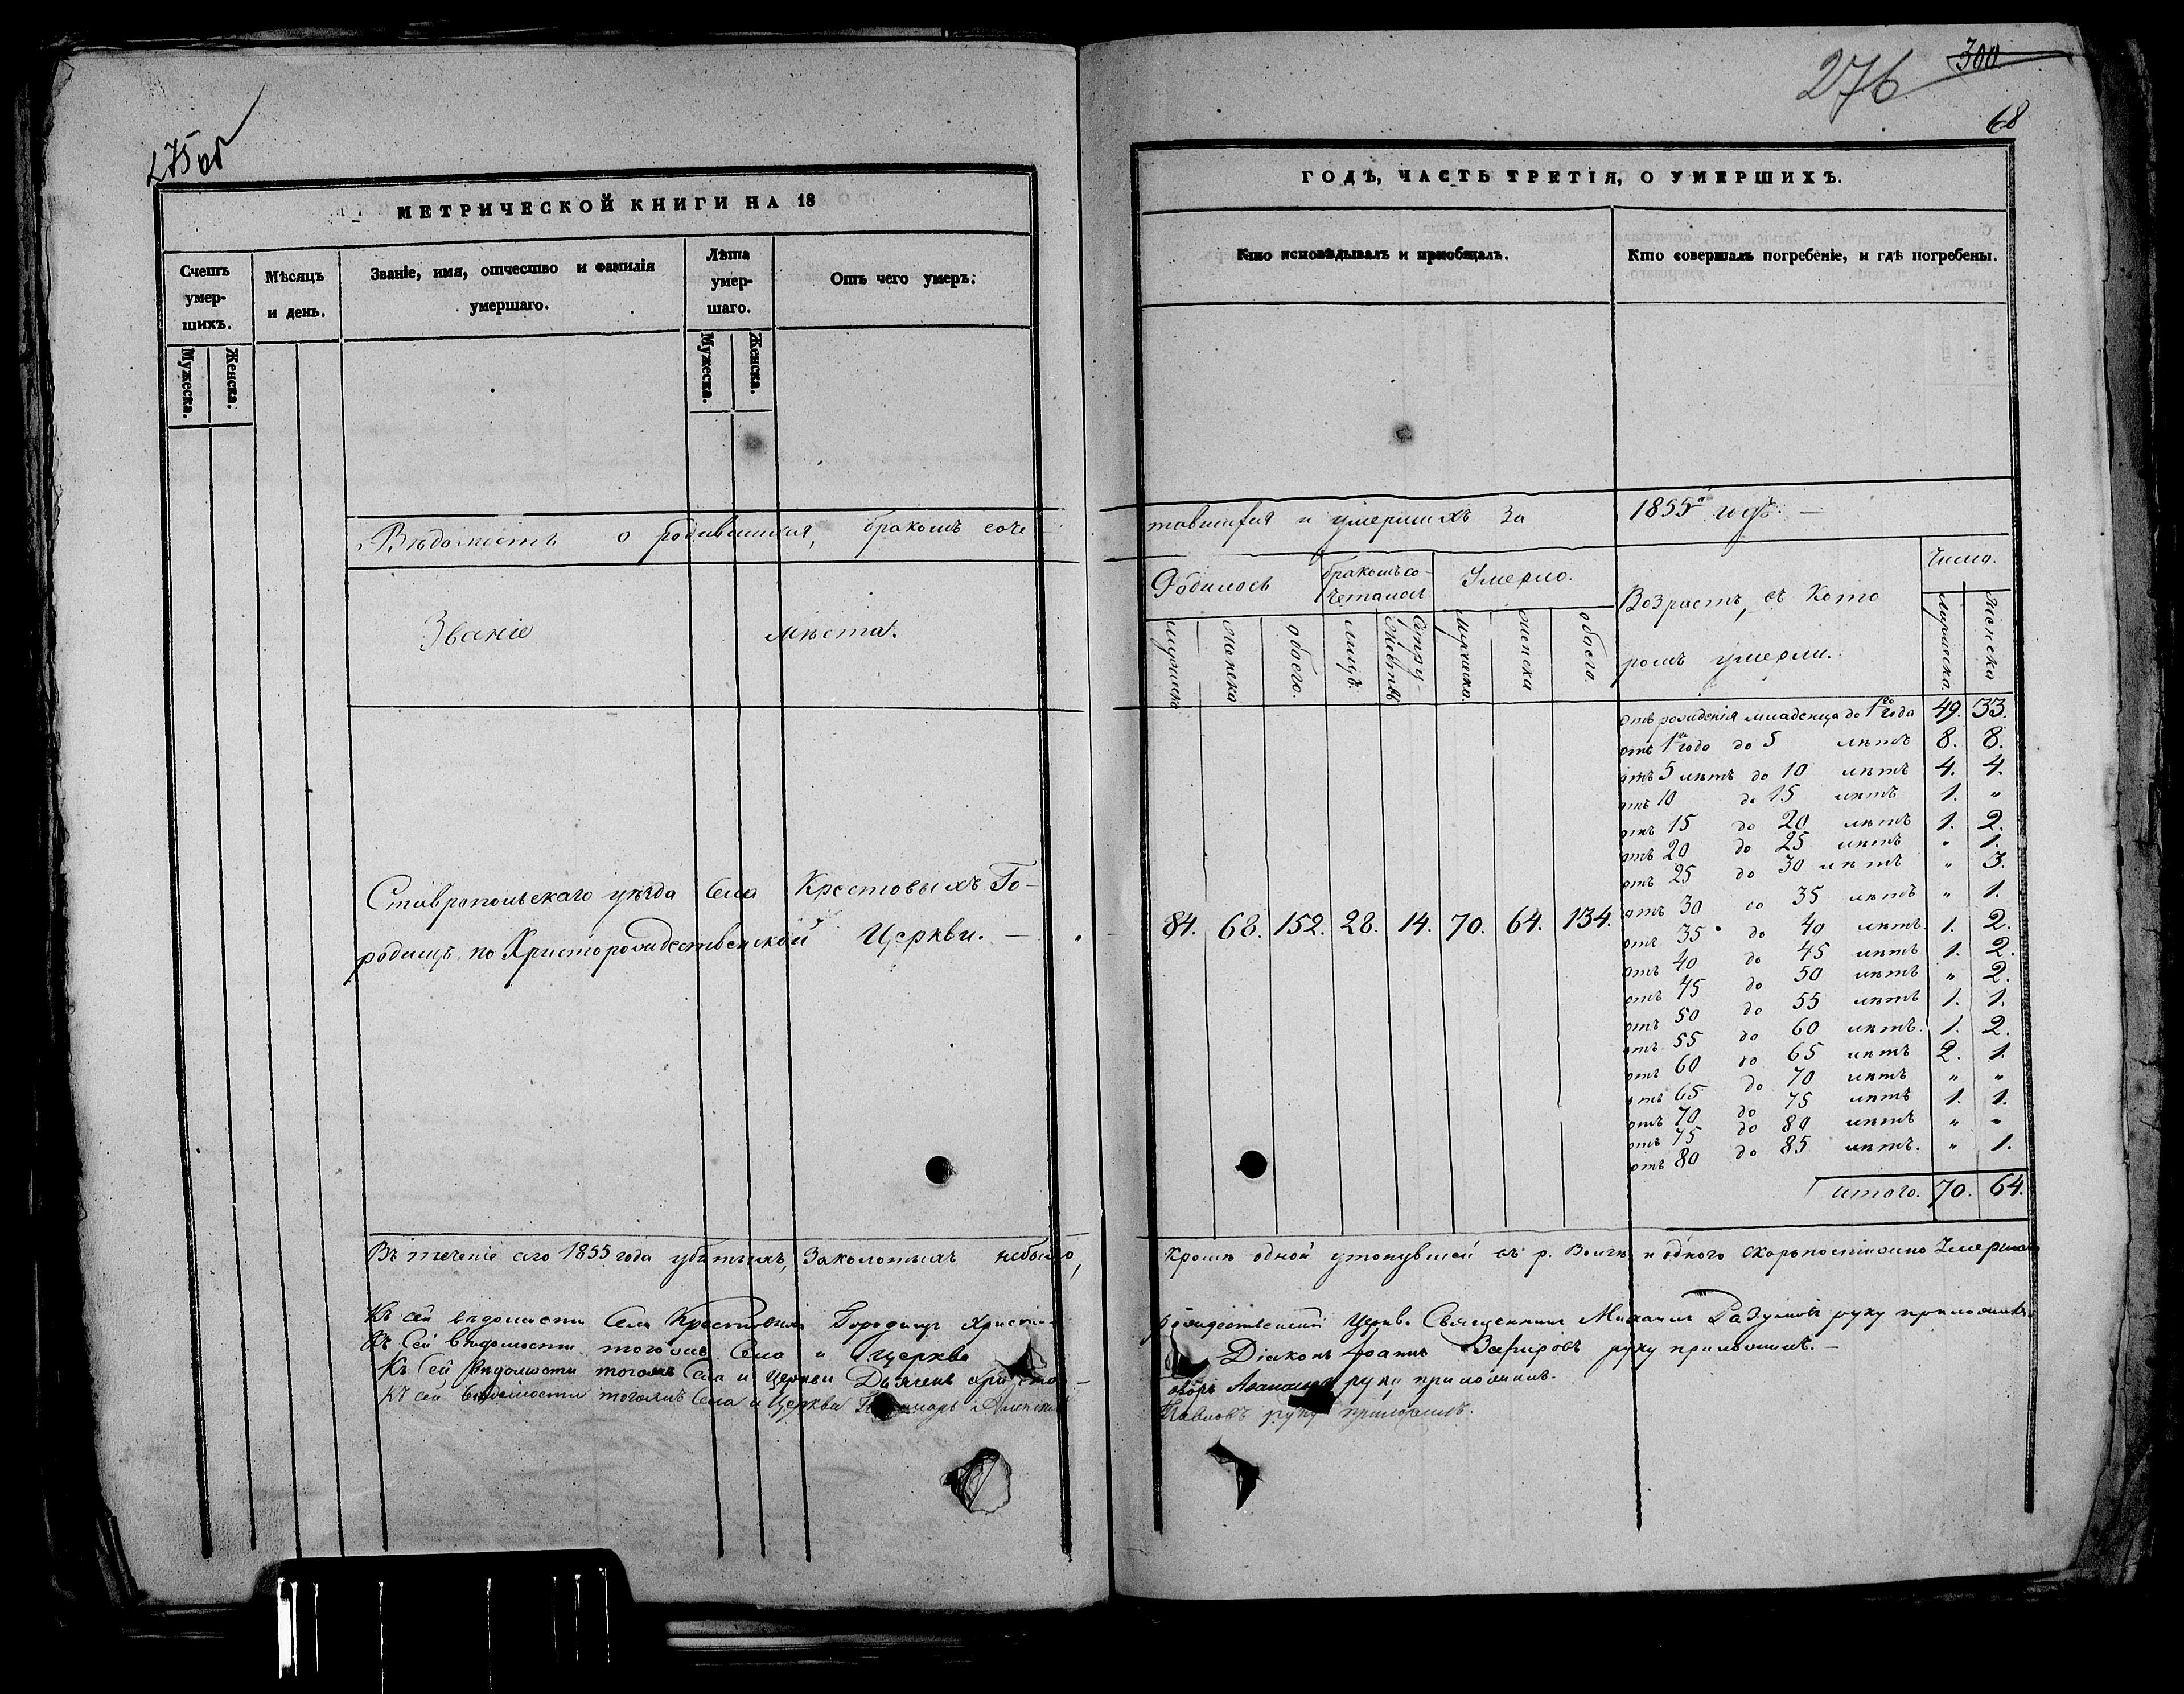 275 об
МЕТРИЧЕСКОЙ КНИГИ НА 18
Счетъ умер-шихъ.
Мужеска.
Женска.
Мѣсяцъ и день.
Званіе, имя, отчество и фамилія умершаго.
Лѣта умер-шаго.
Мужеска.
Женска.
Отъ чего умеръ.
276
300
68
ГОДЪ, ЧАСТЬ ТРЕТІЯ, О УМЕРШИХЪ.
Кто исповѣдывалъ и пріобщалъ.
Кто совершалъ погребеніе, и гдѣ погребены.
Вѣдомость о родившихся, бракомъ соче
тавшихся и умершихъ за 1855й годъ. —
Званіе мѣста.
Родилось
мужеска
женска
обоего.
бракомъ со-четалось
лицъ.
супру-жествъ
Умерло.
мужеска.
женска
обоего.
Возрастъ, въ кото
ромъ умерли.
Число.
мужеска.
женска
Ставропольскаго уѣзда Села Крестовыхъ Го-
родищъ по Христорождественской Церкви. —
84. 68. 152. 28. 14. 70. 64. 134.
отъ рожденія младенца до 1го года 49. 33.
отъ 1го года до 5 лѣтъ 8. 8.
отъ 5 лѣтъ до 10 лѣтъ 4. 4.
отъ 10 до 15 лѣтъ 1. "
отъ 15 до 20 лѣтъ 1. 2.
отъ 20 до 25 лѣтъ " 1.
отъ 25 до 30 лѣтъ " 3.
отъ 30 до 35 лѣтъ " 1.
отъ 35 до 40 лѣтъ. 1. 2.
отъ 40 до 45 лѣтъ 1. 2.
отъ 45 до 50 лѣтъ " 2.
отъ 50 до 55 лѣтъ 1. 1.
отъ 55 до 60 лѣтъ. 1. 2.
отъ 60 до 65 лѣтъ 2. 1.
отъ 65 до 70 лѣтъ " "
отъ 70 до 75 лѣтъ 1. 1.
отъ 75 до 80 лѣтъ " "
отъ 80 до 85 лѣтъ. " 1.
итого. 70. 64.
Въ теченіе сего 1855 года убитыхъ, заколотыхъ небыло,
кромѣ одной утонувшей въ р. Волгѣ и одного скоропостижно
Къ сей вѣдомости Села Крестовыхъ Городищъ Христо-
рождественской Церкви Священникъ Михаилъ руку приложилъ
Къ сей вѣдомости тогожъ Села и Церкви
Діаконъ Іоаннъ Зефировъ руку приложилъ. —
Къ сей вѣдомости тогожъ Села и Церкви Дьячекъ
руку приложилъ.
Къ сей вѣдомости тогожъ Села и Церкви Пономарь
Павловъ руку приложилъ.